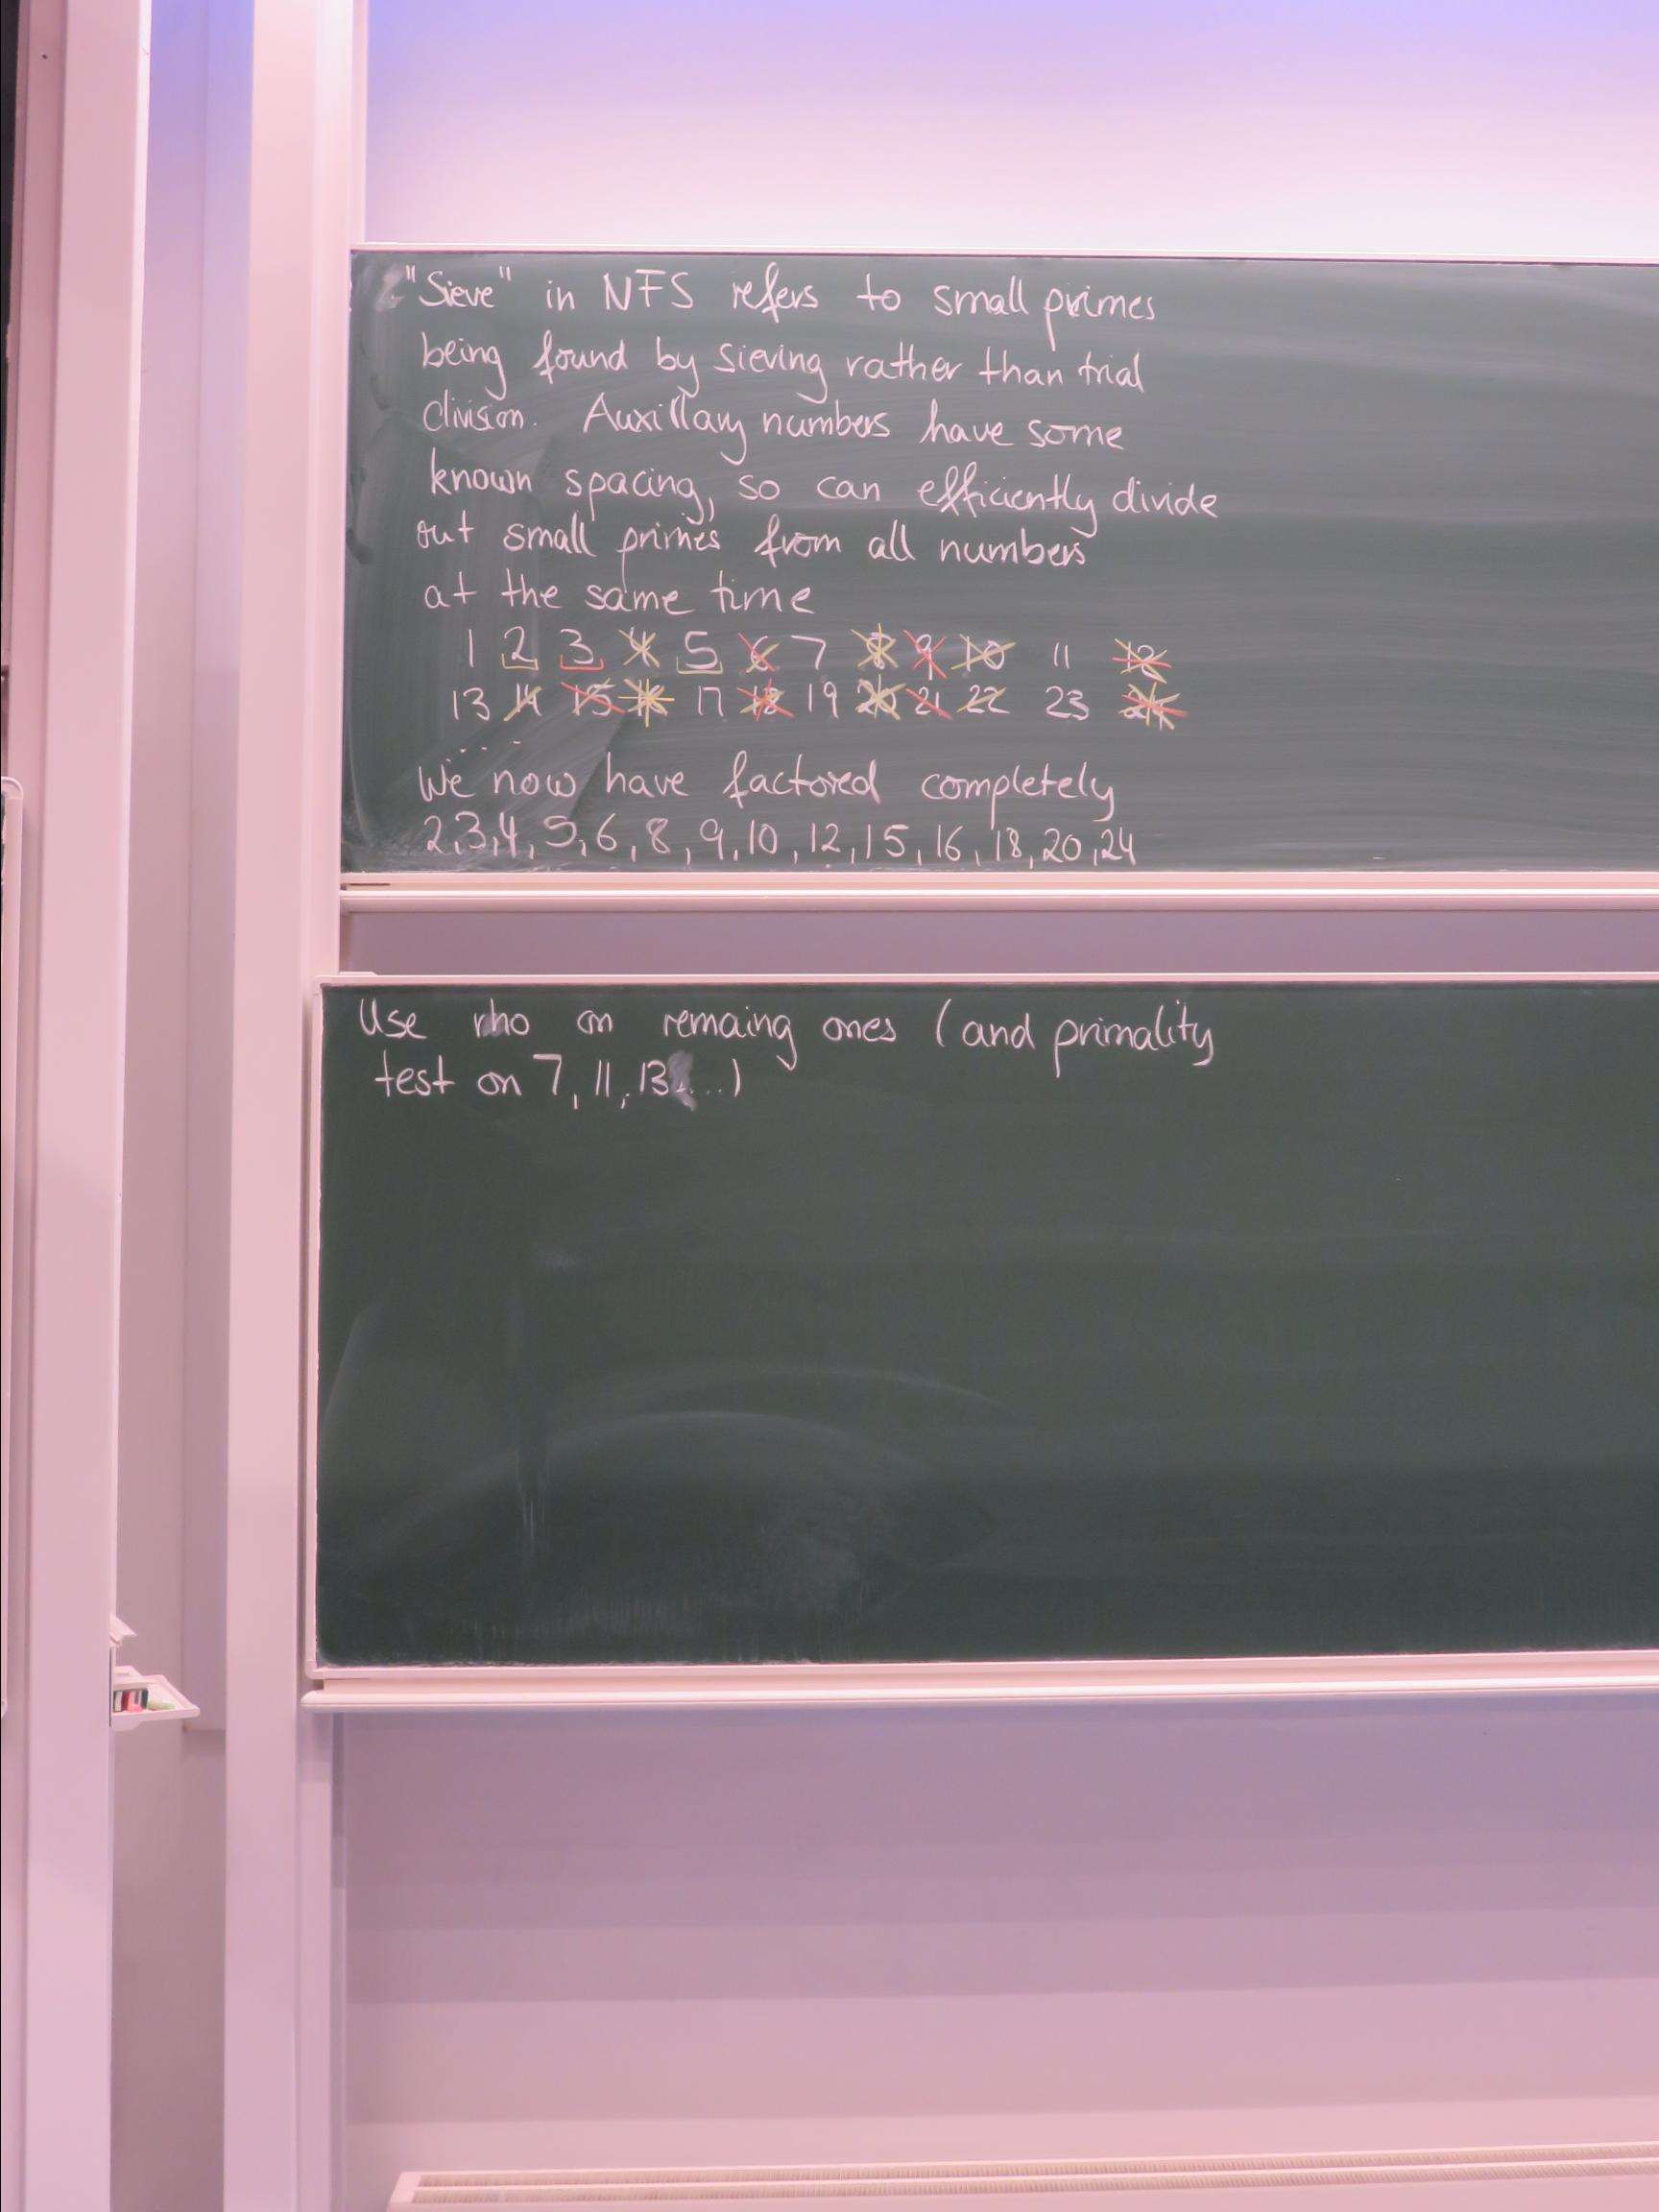 "Sieve" in NFS refers to small primes
being found by sieving rather than trial
division. Auxillary numbers have some
known spacing, so can efficiently divide
out small primes from all numbers
at the same time
1 2 3 4 5 6 7 8 9 10 11 12
13 14 15 16 17 18 19 20 21 22 23 24
....
We now have factored completely
2,3,4,5,6,8,9,10,12,15,16,18,20,24
Use rho on remaing ones (and primality
test on 7, 11, 13, ...)